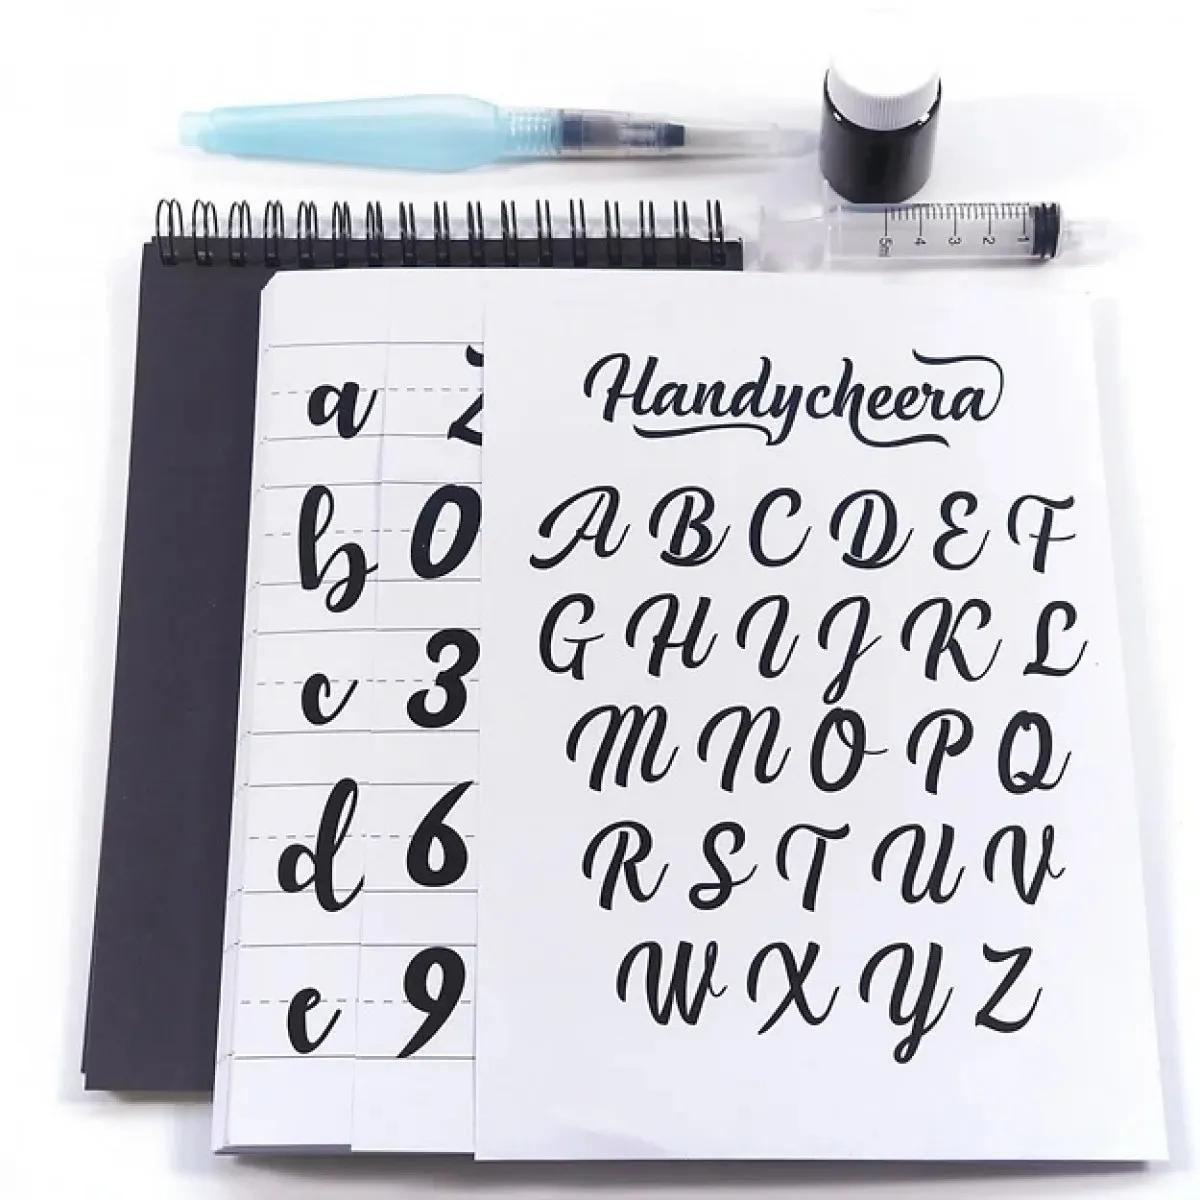 5ml 4 3 2 1
Handycheera
A B C D E F
G H I J K L
M N O P Q
R S T U V
W X Y Z
a 2
b 0
c 3
d 6
e 9